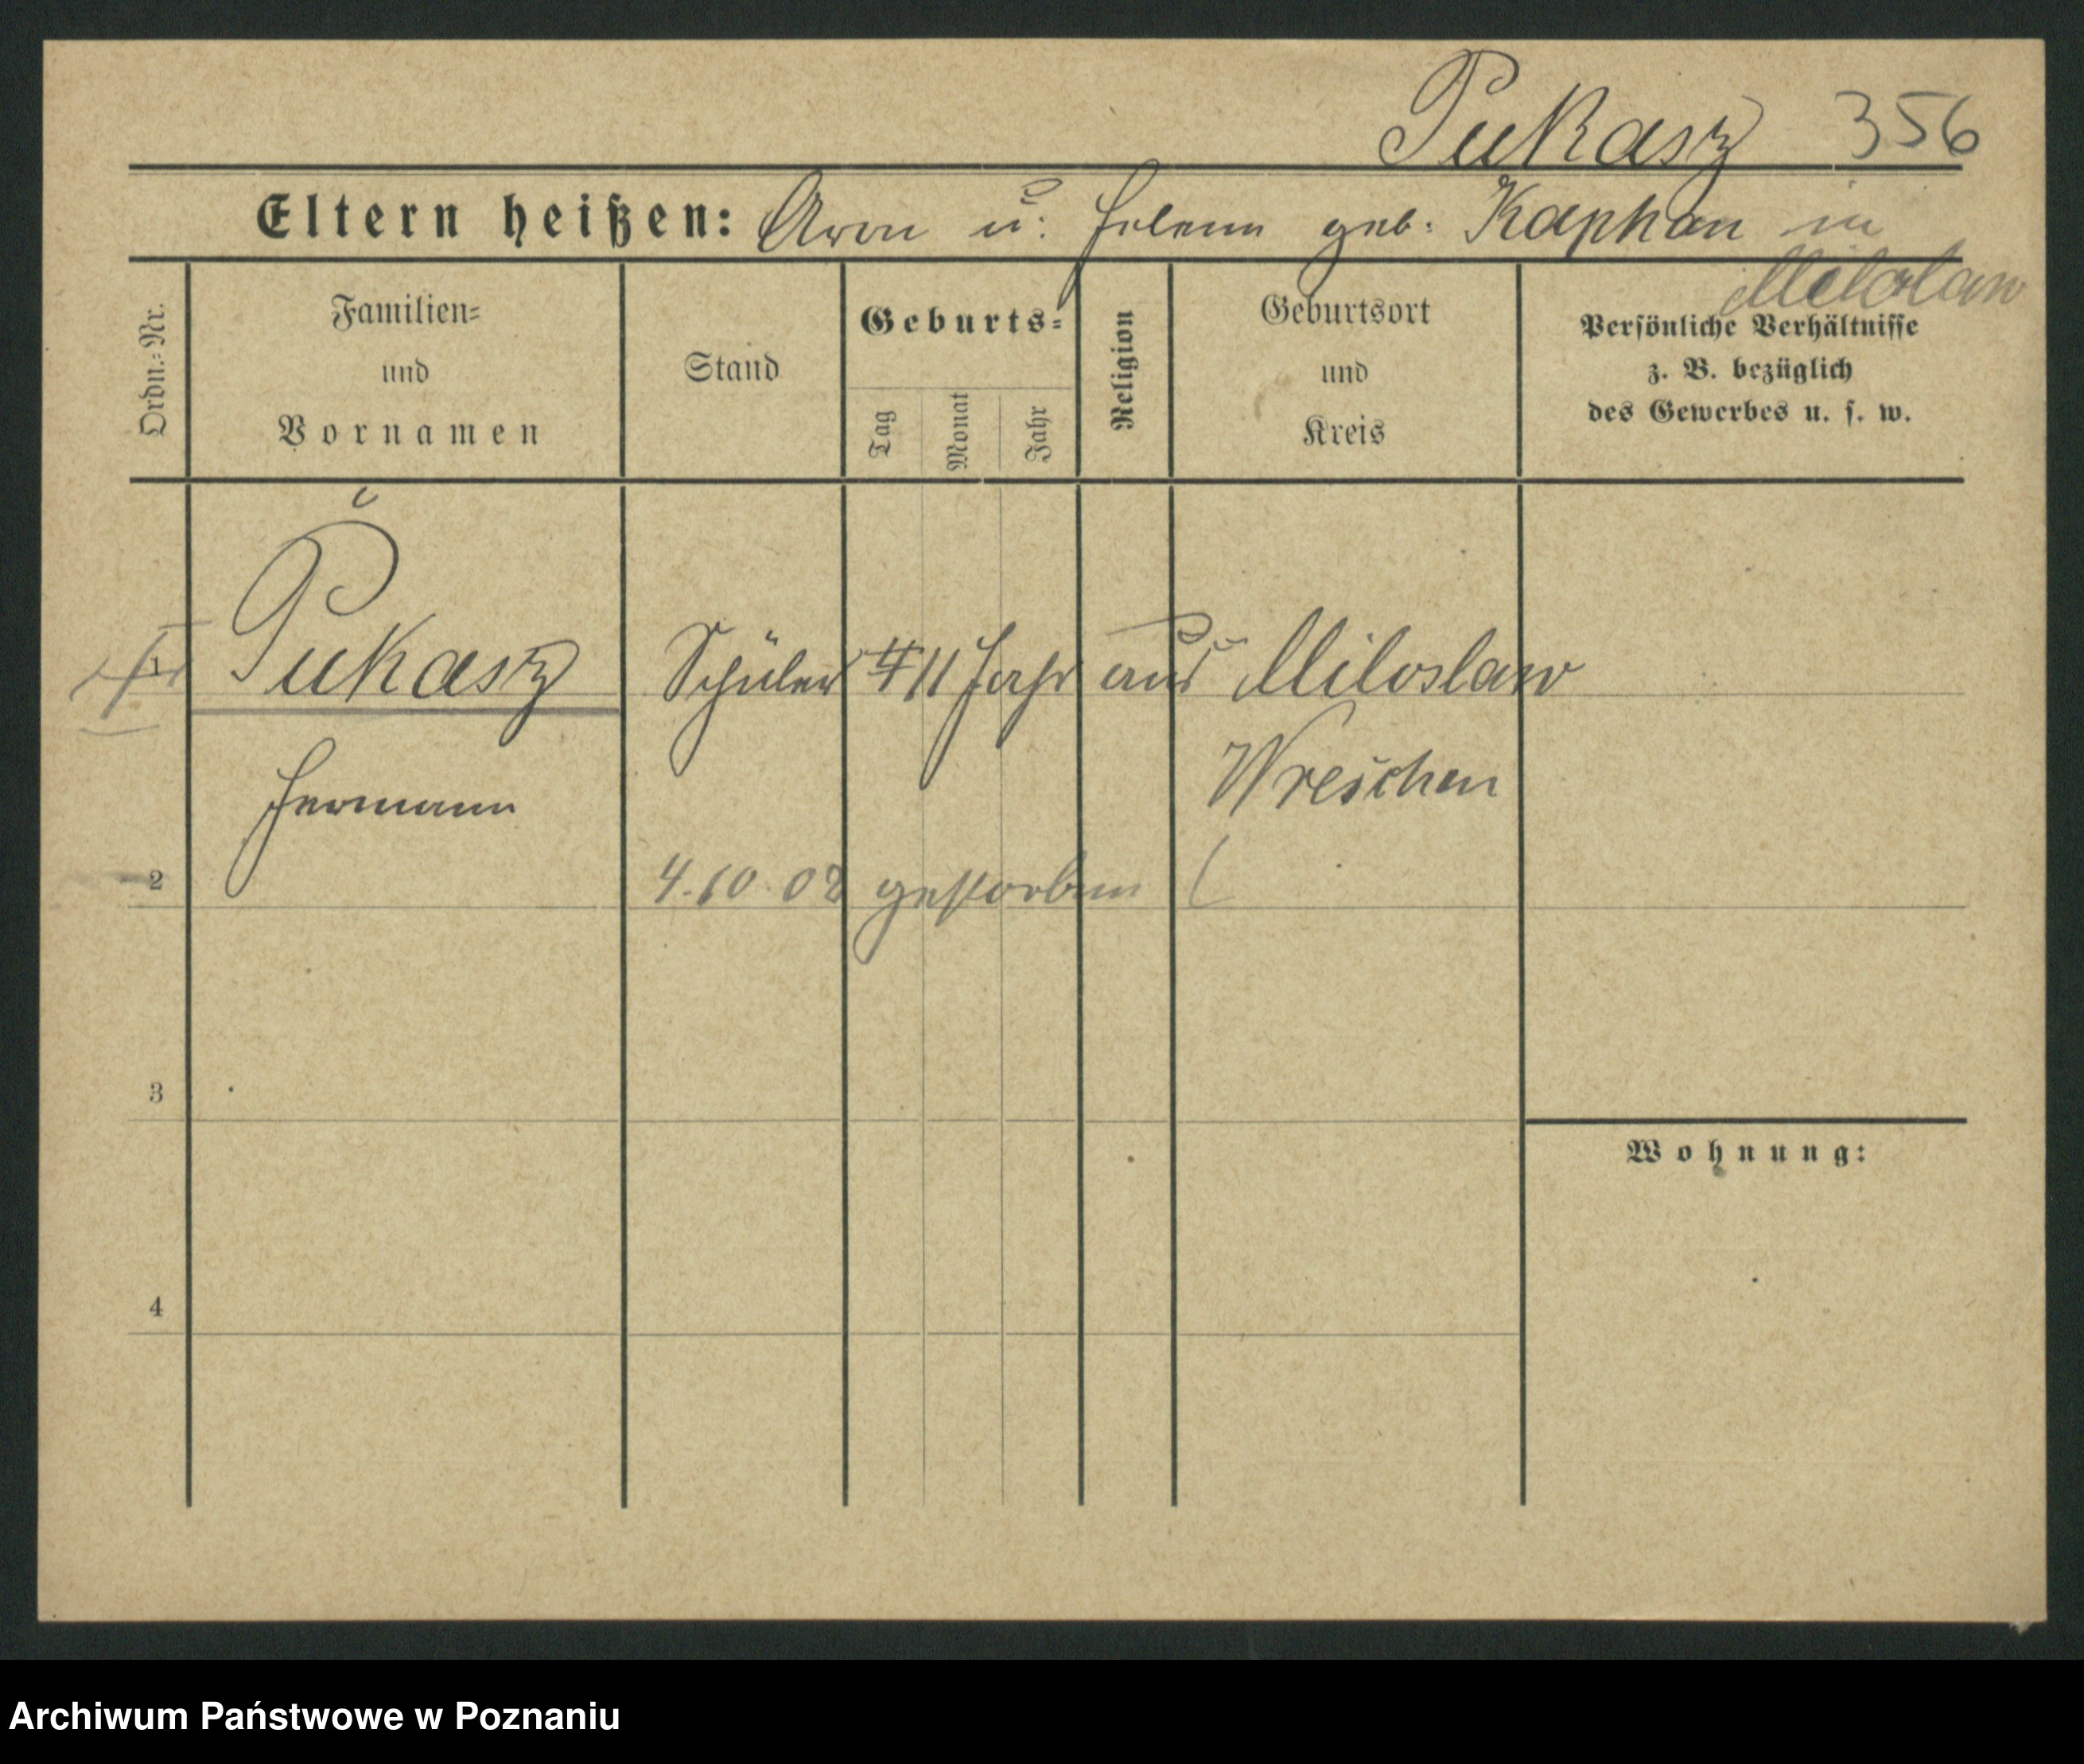 Pukasz 356
Eltern heißen: Aron u. Helene geb. Kaphan in
Miloslaw
Ordn.=Nr.
Familien=
und
Vornamen
Stand
Geburts=
Tag
Monat
Jahr
Religion
Geburtsort
und
Kreis
Persönliche Verhältnisse
z. B. bezüglich
des Gewerbes u. s. w.
1 Pukasz Schüler 11 Jahr aus Miloslaw
Hermann Wreschen
2 4.10.02 gestorben
3
Wohnung:
4
Archiwum Państwowe w Poznaniu